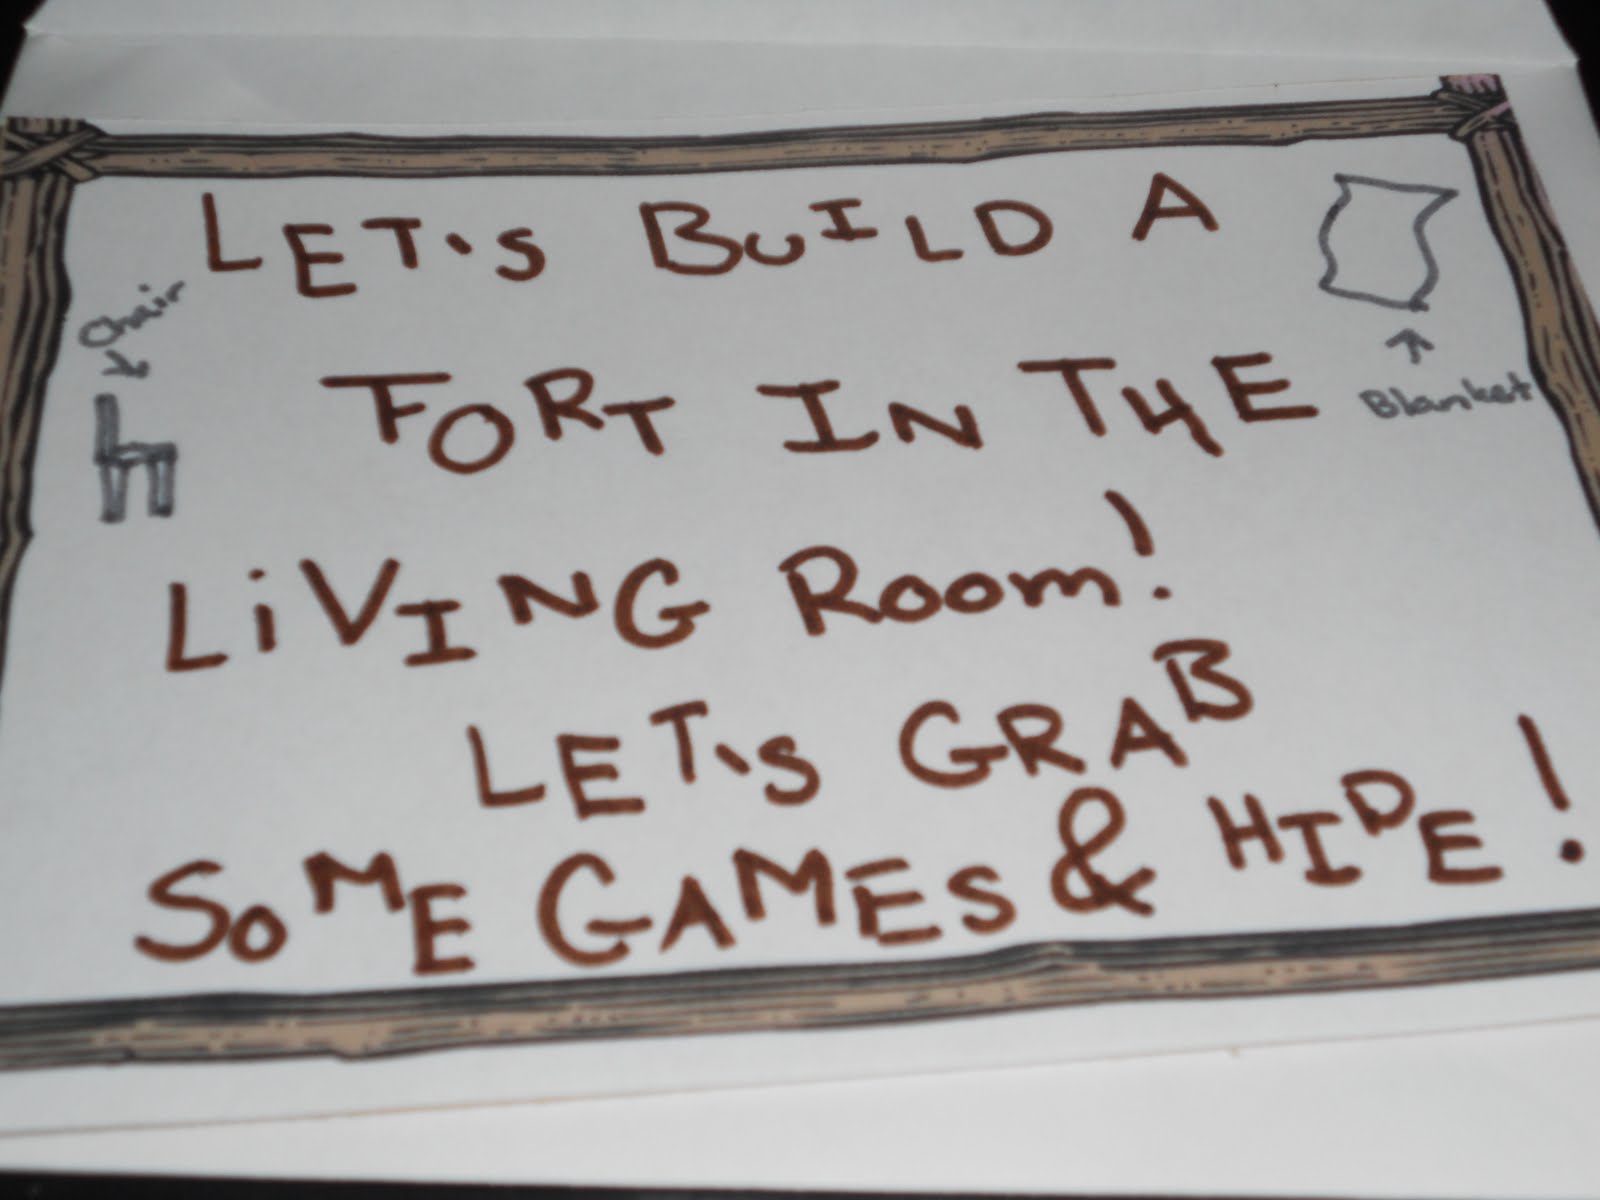 LET'S BUILD A
Chair
FORT IN THE
Blanket
LiViNG Room!
LET'S GRAB
SOME GAMES & HIDE!